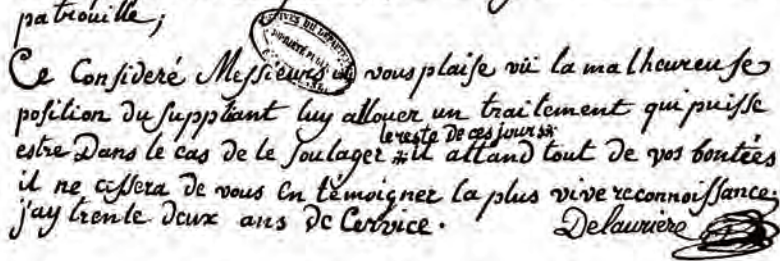 patrouille;
Ce Consideré Messieurs il vous plaise vû la malheureuse
position du suppliant luy allouer un traitement qui puisse
le reste de ces jours
estre Dans le cas de le soulager il attand tout de vos bontées
il ne cessera de vous en témoigner la plus vive reconnoissance,
j'ay trente deux ans de Cervice.
Delaurière